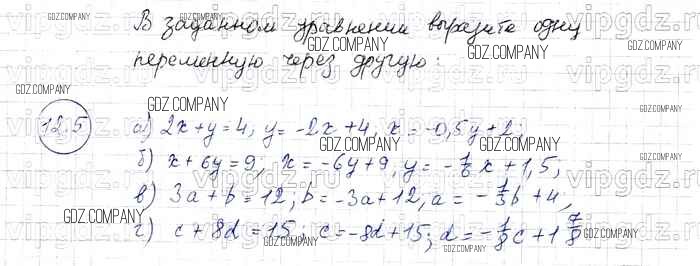 В заданном уравнении выразите одну
переменную через другую:
12.5
а) 2x+y=4, y=-2x+4, x=-0,5y+2;
б) x+6y=9; x=-6y+9, y=-1/6x+1,5;
в) 3a+b=12; b=-3a+12, a=-1/3b+4,
г) c+8d=15; c=-8d+15; d=-1/8c+1 7/8
GDZ.COMPANY
vipgdz.ru